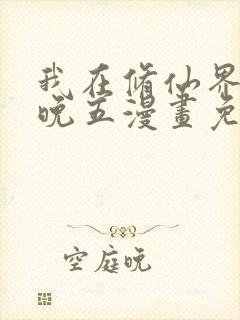 我在修仙界
晚五漫畫免
空庭晚